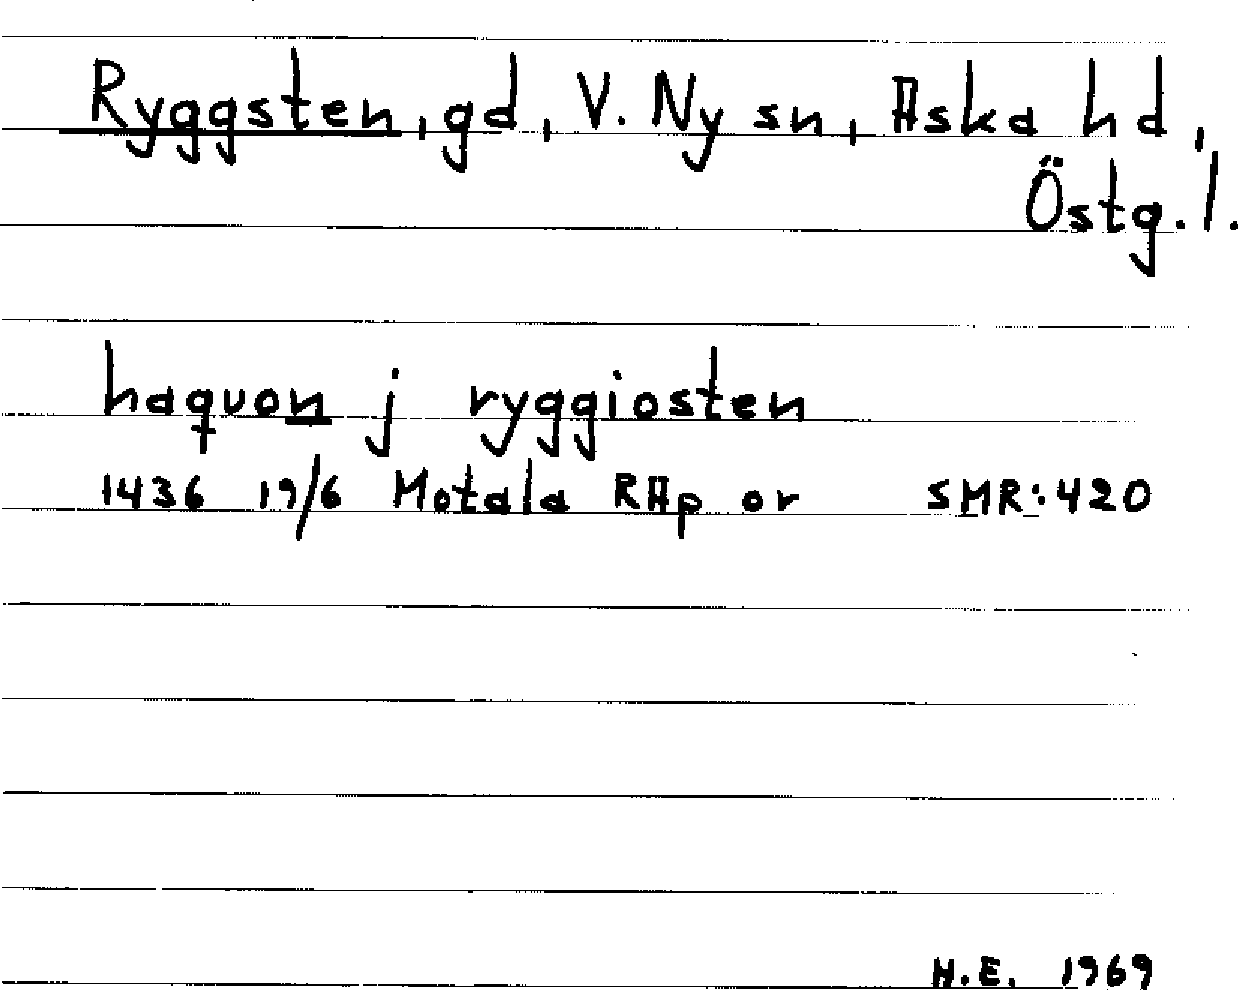 Ryggsten, gd, V. Ny sn, Aska hd,
Östg. l.
haquon j ryggiosten
1436 19/6 Motala RAp or SMR:420
H.E. 1969